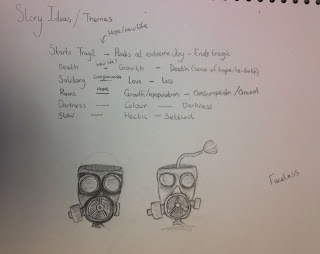 Story Ideas / Themes
Hope/new life
Starts Tragic - Peaks at extreme Joy - Ends tragic
Death - new life? Growth - Death (sense of hope/
Solitary Companionship Love - Loss
Ruins Hope Growth/ - consumption/
Darkness — Colour — Darkness
Slow — Hectic - Settled
Faceless